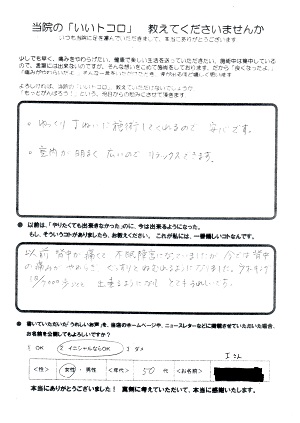 当院の「いいトコロ」 教えてくださいませんか
いつも当院に足を運んでいただきまして、本当にありがとうございます
少しでも早く、痛みをやわらげたい、健康で楽しい生活を送っていただきたい、施術中は集中している
ので、言葉には出来ないのですが、そんな想いをこめて施術をしております。だから「良くなったよ」
よろしければ、当院の「いいトコロ」教えていただけないでしょうか
・ゆっくり丁ねいに施術してくれるので 安心です。
・室内が明るく広いので リラックスできます。
● 以前は、「やりたくても出来きなかった」のに、今は出来るようになった。
もし、そういうコトがありましたら、お教えください。 これが私には、一番嬉しいコトなんです。
以前 背中が痛くて 不眠障害になっていましたが 今では背中
の痛みが やわらぎ ぐっすりとねむれるようになりました。
出来るようになり とてもうれしいです。
● 書いていただいた「うれしいお声」を、当院のホームページや、ニュースレターなどに掲載させていただいた場合、
お名前を公開してもよろしいですか?
1 OK 2 イニシャルならOK 3 ダメ
I さん
<性> 女性 ・ 男性 <年代> 50 代 <お名前>
本当にありがとうございました! 真剣に考えていただいて、本当に感謝いたします。